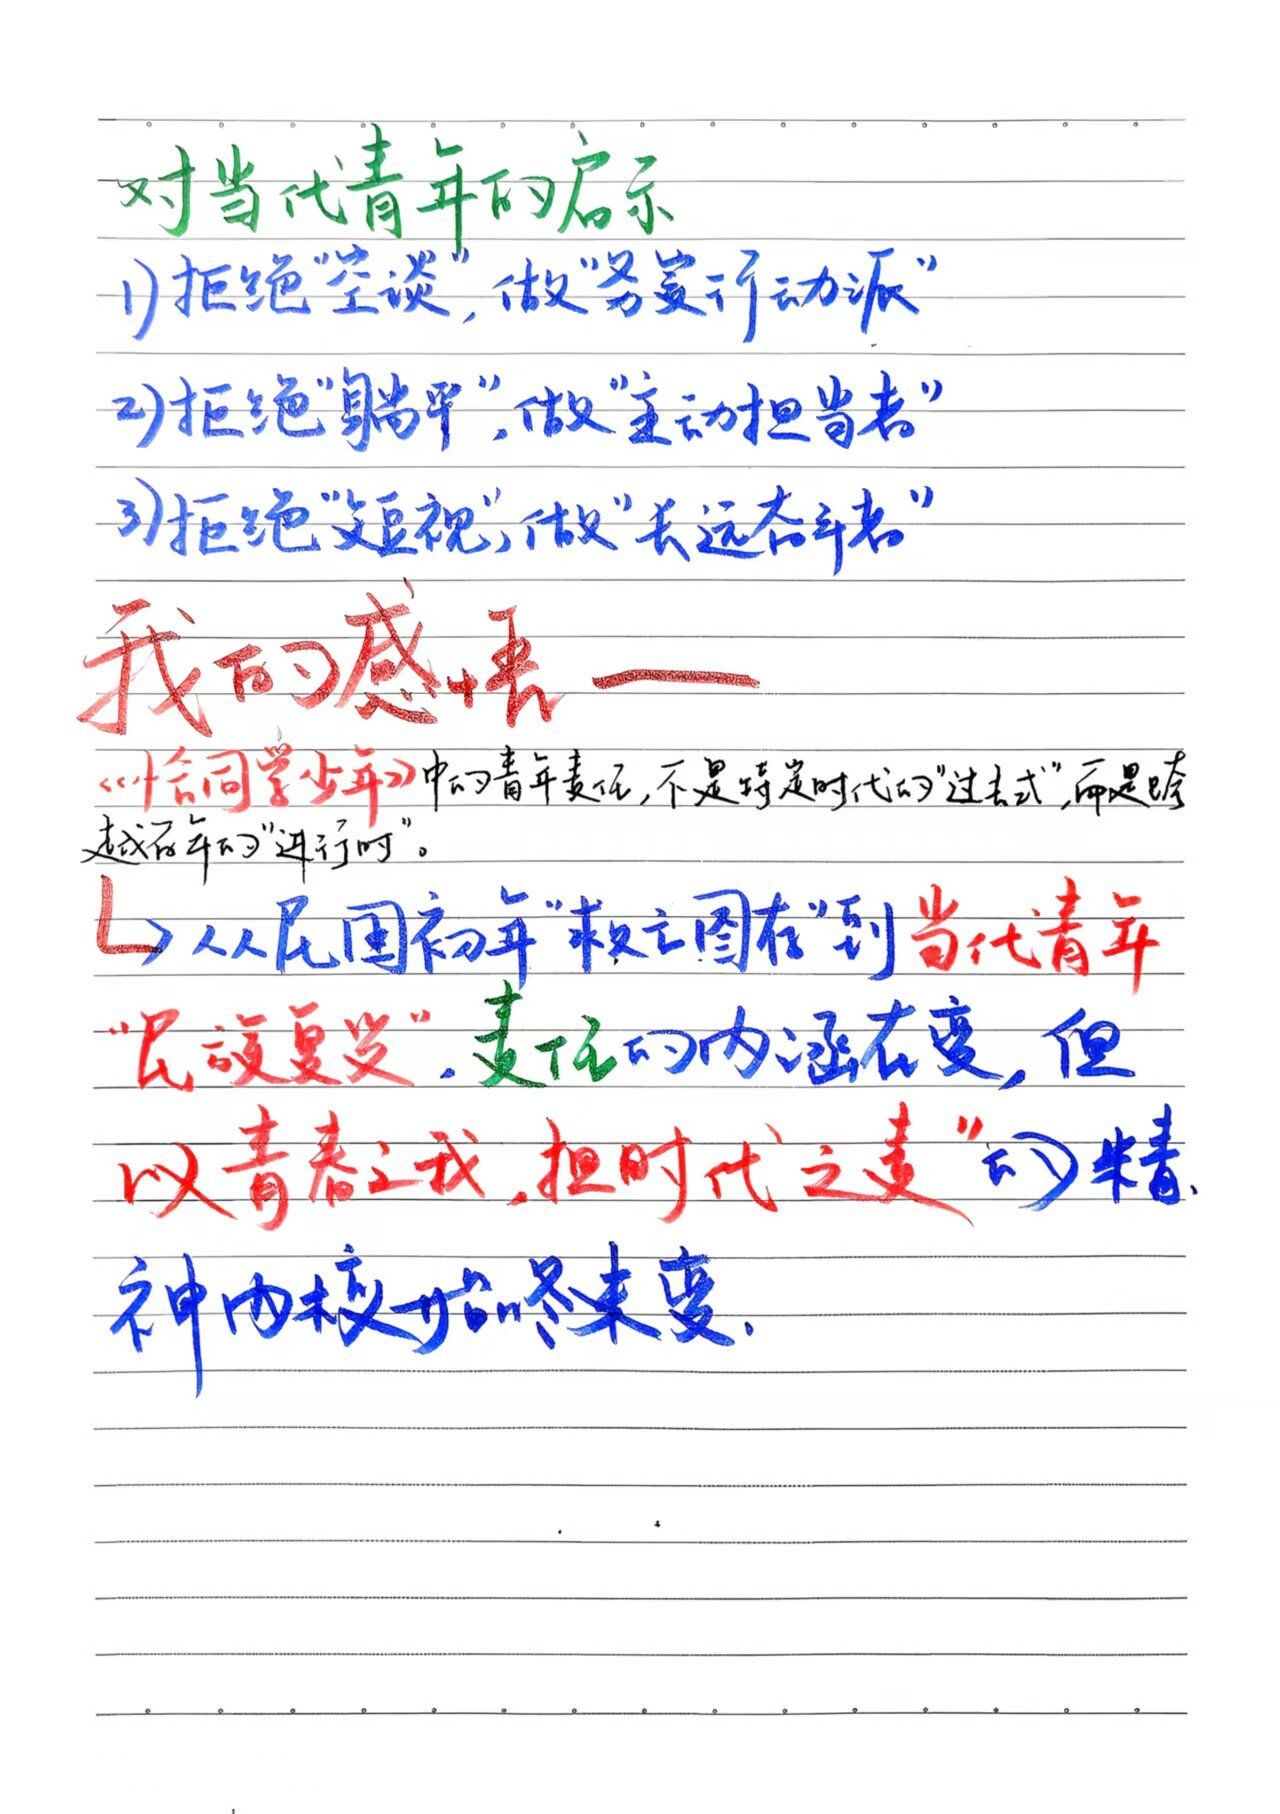 对当代青年的启示
1)拒绝"空谈",做"务实行动派"
2)拒绝"躺平",做"主动担当者"
3)拒绝"短视",做"长远奋斗者"
我的感悟——
《恰同学少年》中的青年责任,不是特定时代的"过去式",而是跨
越百年的"进行时"。
↳从民国初年"救亡图存"到当代青年
"民族复兴",责任的内涵在变,但
以青春之我,担时代之责"的精
神内核始终未变.